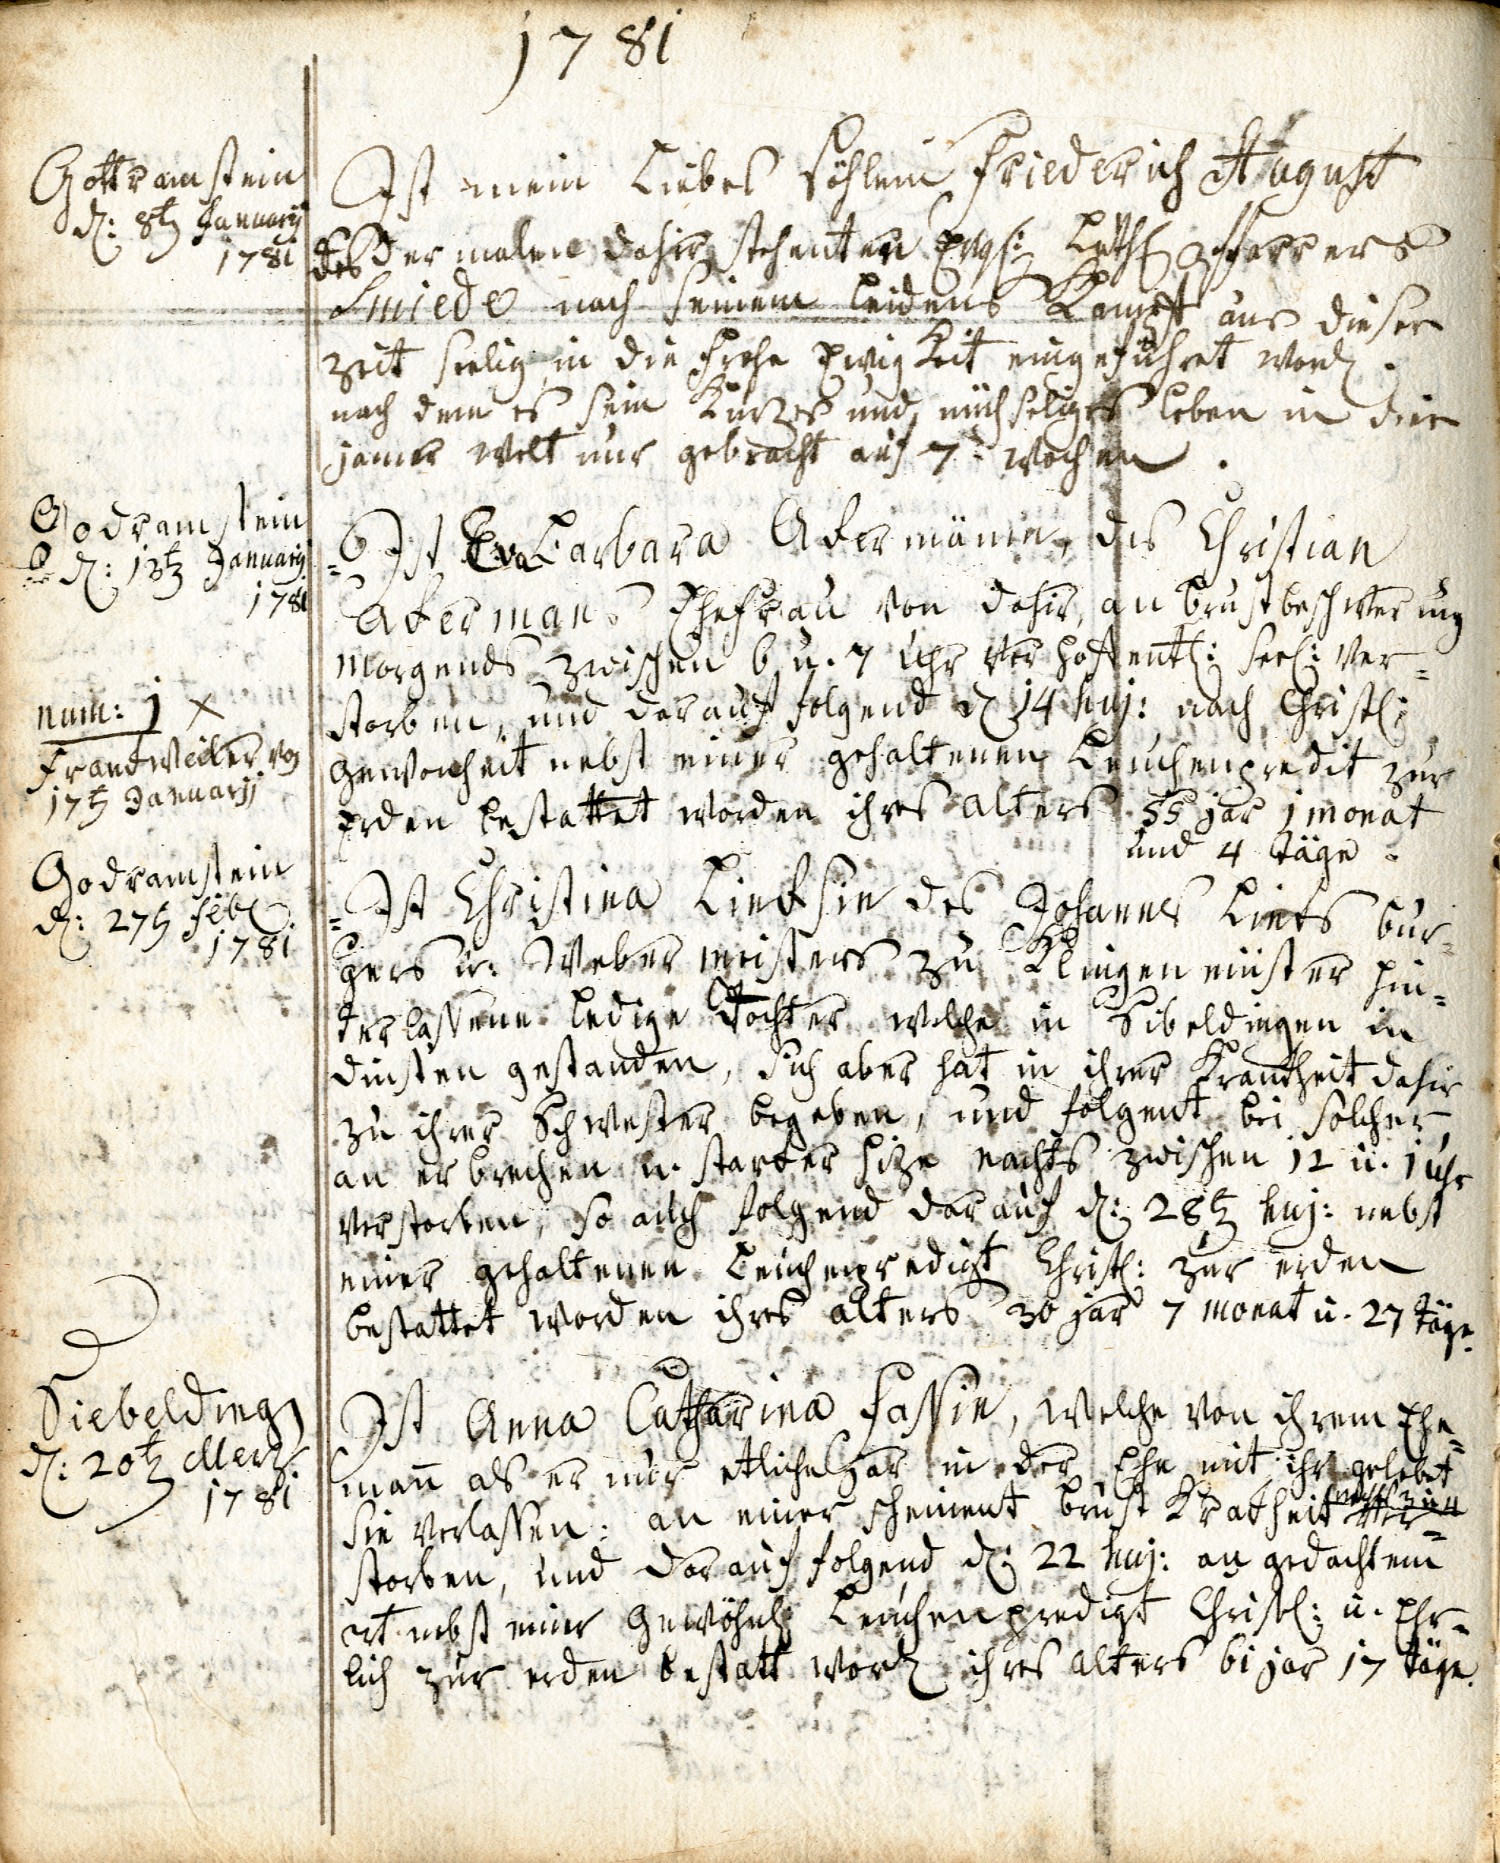 1781
Gottramstein
d: 8t January
1781
Ist mein Liebes Söhlein Friederich August
des der malen dahir stehenten Evgl: Luth Pfarrers
Smiede nach seinem leidens Kampft aus dieser
zeit seelig in die frohe Ewigkeit eingeführet word.
nach dem es sein Kurzes und mühseliges leben in die
jamer welt nur gebracht auf 7: wochen.
Godramstein
d: 13t January
1781
Ist Eva Barbara Akermänin, des Christian
Akermans Ehefrau von dahir, an brustbeschwerung
morgends zwischen 6 u. 7 uhr hoffentl: seel: ver=
storben, und darauf folgend d 14 huj: nach Christl:
gewonheit nebst einer gehaltenen Leuchenpredit zur
Erden bestattet worden ihres alters 55 jar 1 monat
und 4 täge.
num: 1 ×
Frankweiler
17t Januarij
Godramstein
d: 27t feb
1781
Ist Christina Lieksin des Johannes Lieks bur=
gers u: Weber meisters zu Klingenmüster hin=
terlassene ledige Tochter welche in Sibeldingen in
dinsten gestanden, sich aber hat in ihrer Krankheit dahir
zu ihrer Schwester begeben, und folgent bei solcher
an erbrechen u. starker hize nachts zwischen 12 u. 1 uhr
verstorben, so auch folgend darauf d: 28t huj: nebst
einer gehaltenen Leuchenpredigt Christl: zur erden
bestattet worden ihres alters 30 jar 7 monat u. 27 täge.
Siebelding
d: 20t Merz
1781
Ist Anna Catharina Fassin, welche von ihrem Ehe=
mañ als er nur etliche Jar in der Ehe mit ihr gelebt
sie verlassen: an einer scheinent brust Kratheit ver=
storben, und darauf folgend d: 22 huj: an gedachtem
ort nebst einer gewöhnl: Leuchenpredigt Christl: u. Ehr=
lich zur erden bestatt word ihres alters 61 jar 17 täge.